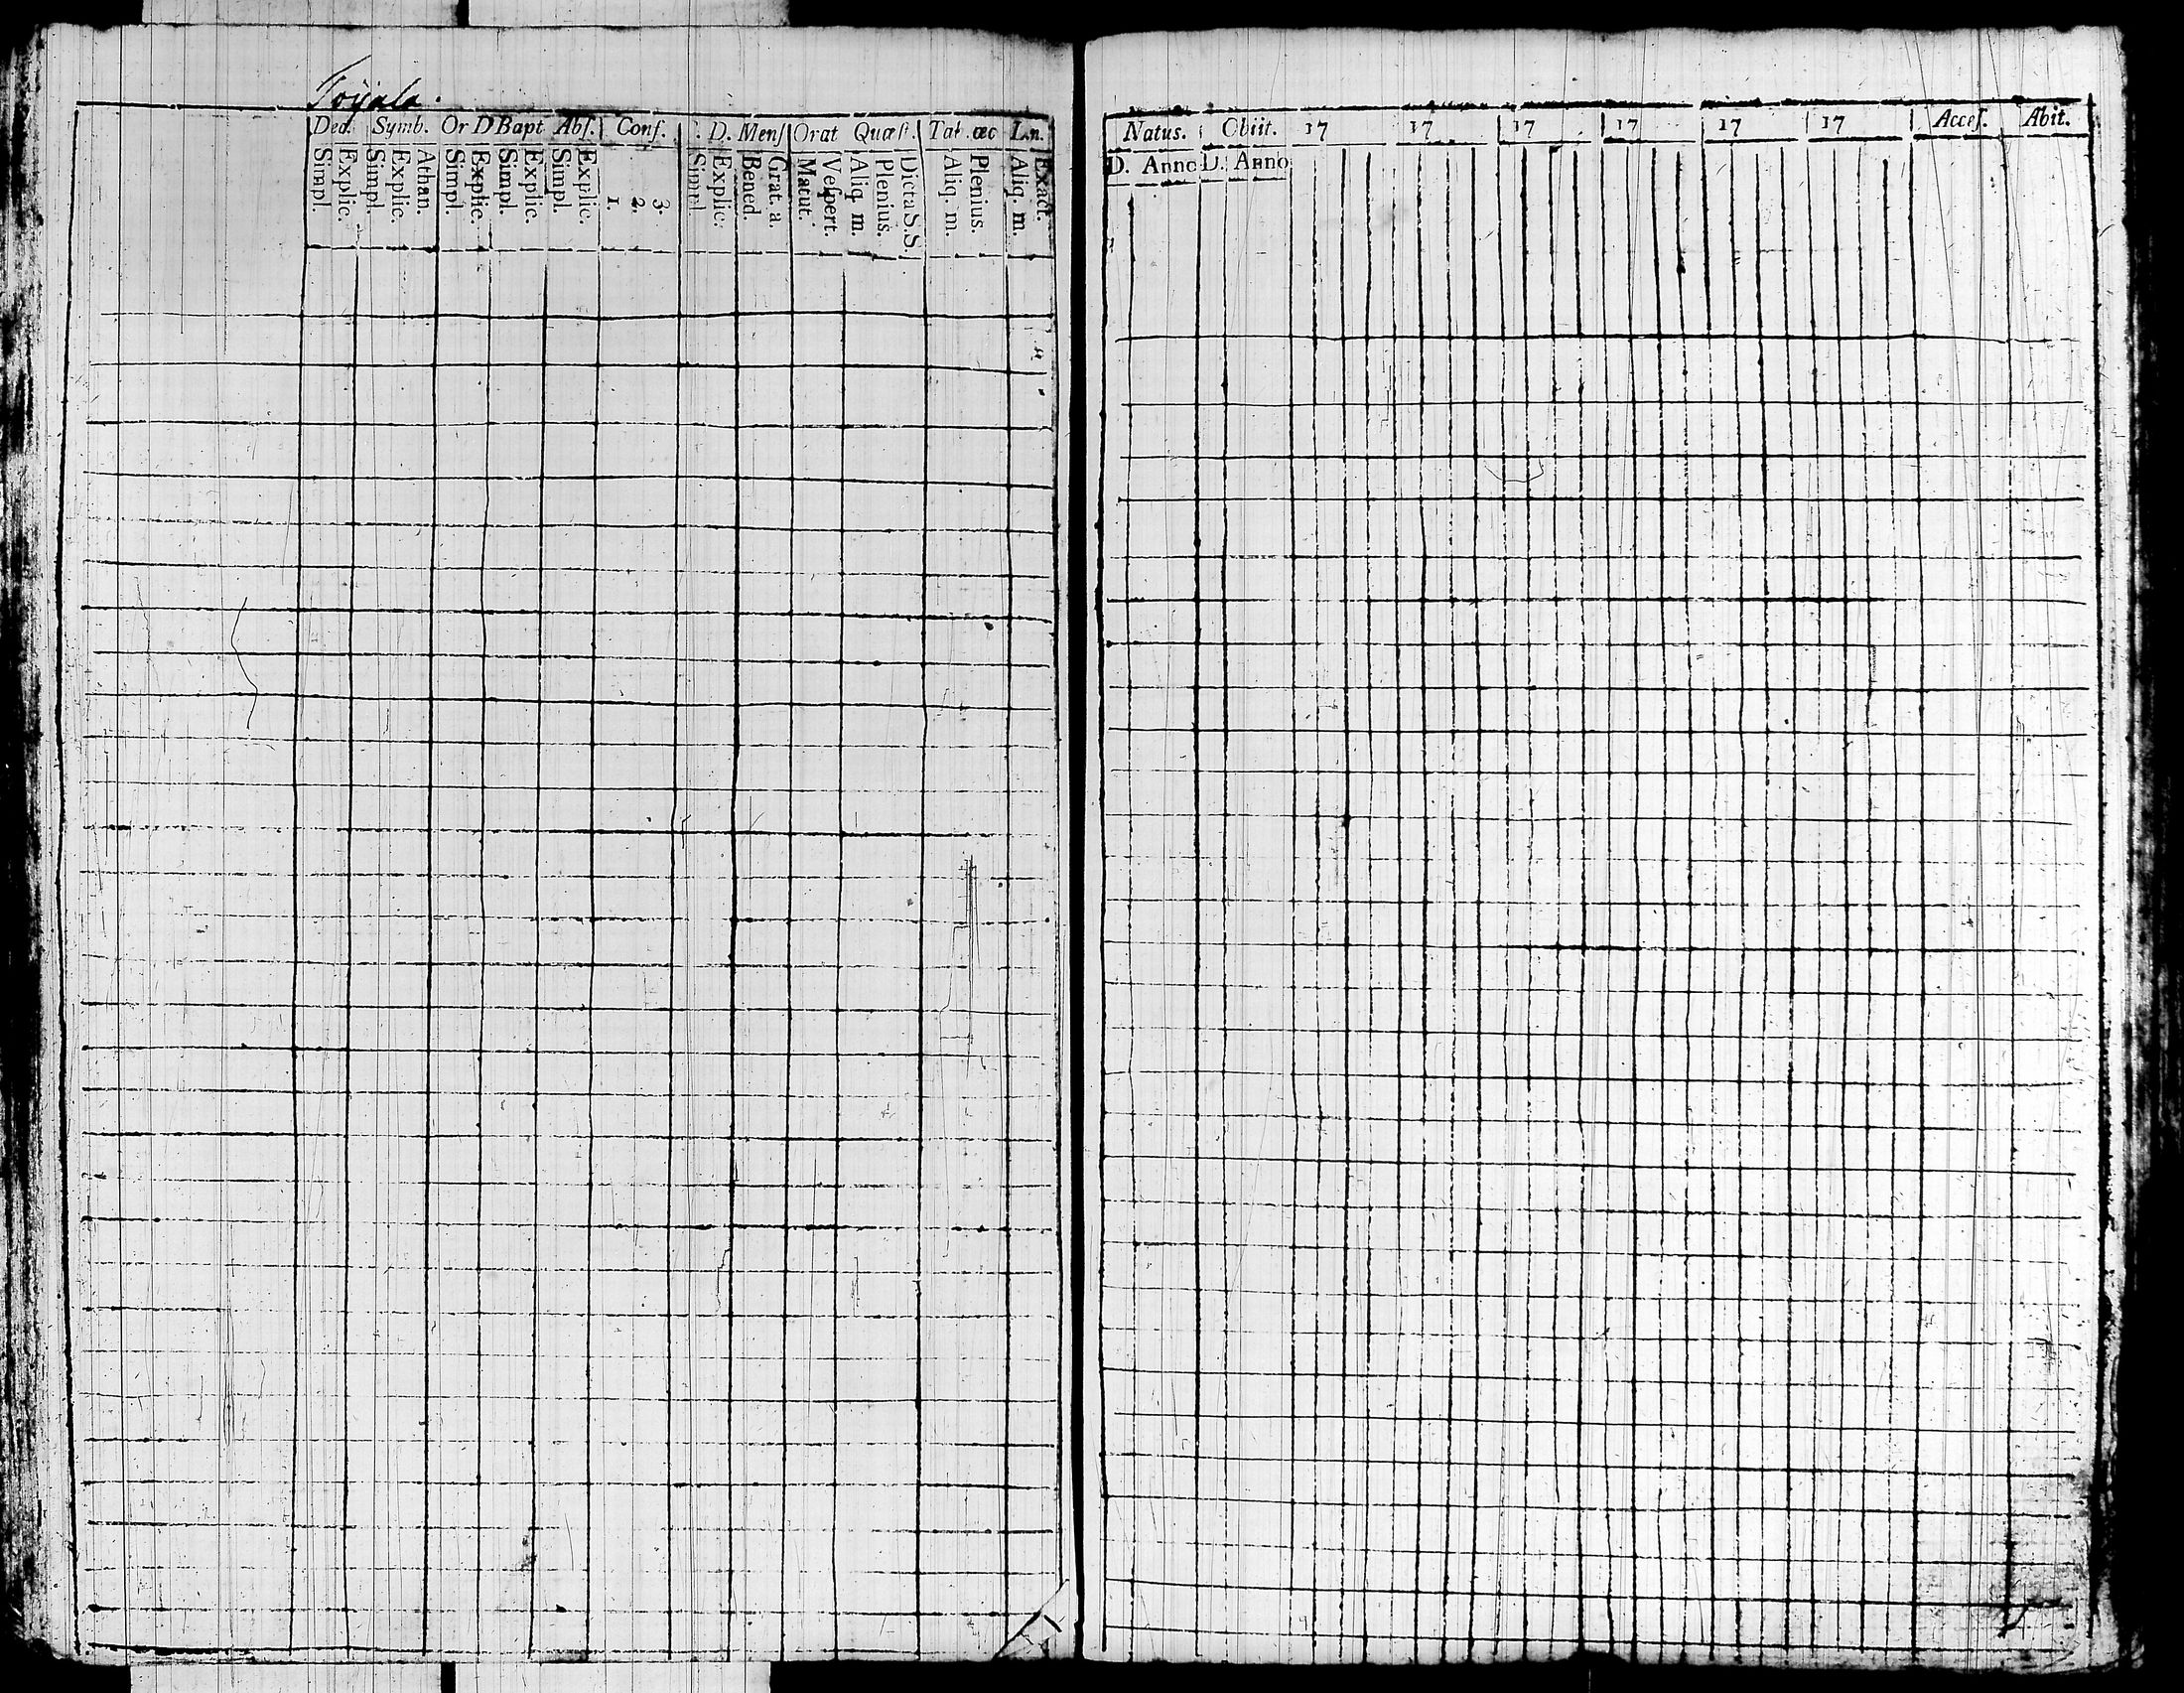 Toijala.
Dec. Symb. Or D Bapt Abſ. Conf. . D. Menſ Orat Quæſt. Tab. œc L.n.
Simpl. Explic. Simpl. Explic. Athan. Simpl. Explic. Simpl. Explic. Simpl. Explic. 1. 2. 3. Simpl Explic. Bened. Grat. a. Matut. Veſpert. Aliq. m. Plenius. Dicta S.S. Aliq. m. Plenius. Aliq. m. Exact.
Natus. Obiit. 17 17 17 17 17 17 Acceſ. Abit.
D. Anno D. Anno